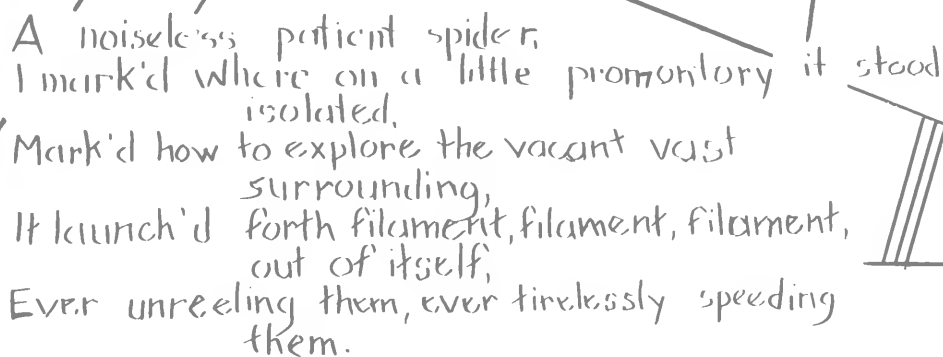 A noiseless patient spider,
I mark'd where on a little promontory it stood
isolated,
Mark'd how to explore the vacant vast
surrounding,
It launch'd forth filament, filament, filament,
out of itself,
Ever unreeling them, ever tirelessly speeding
them.